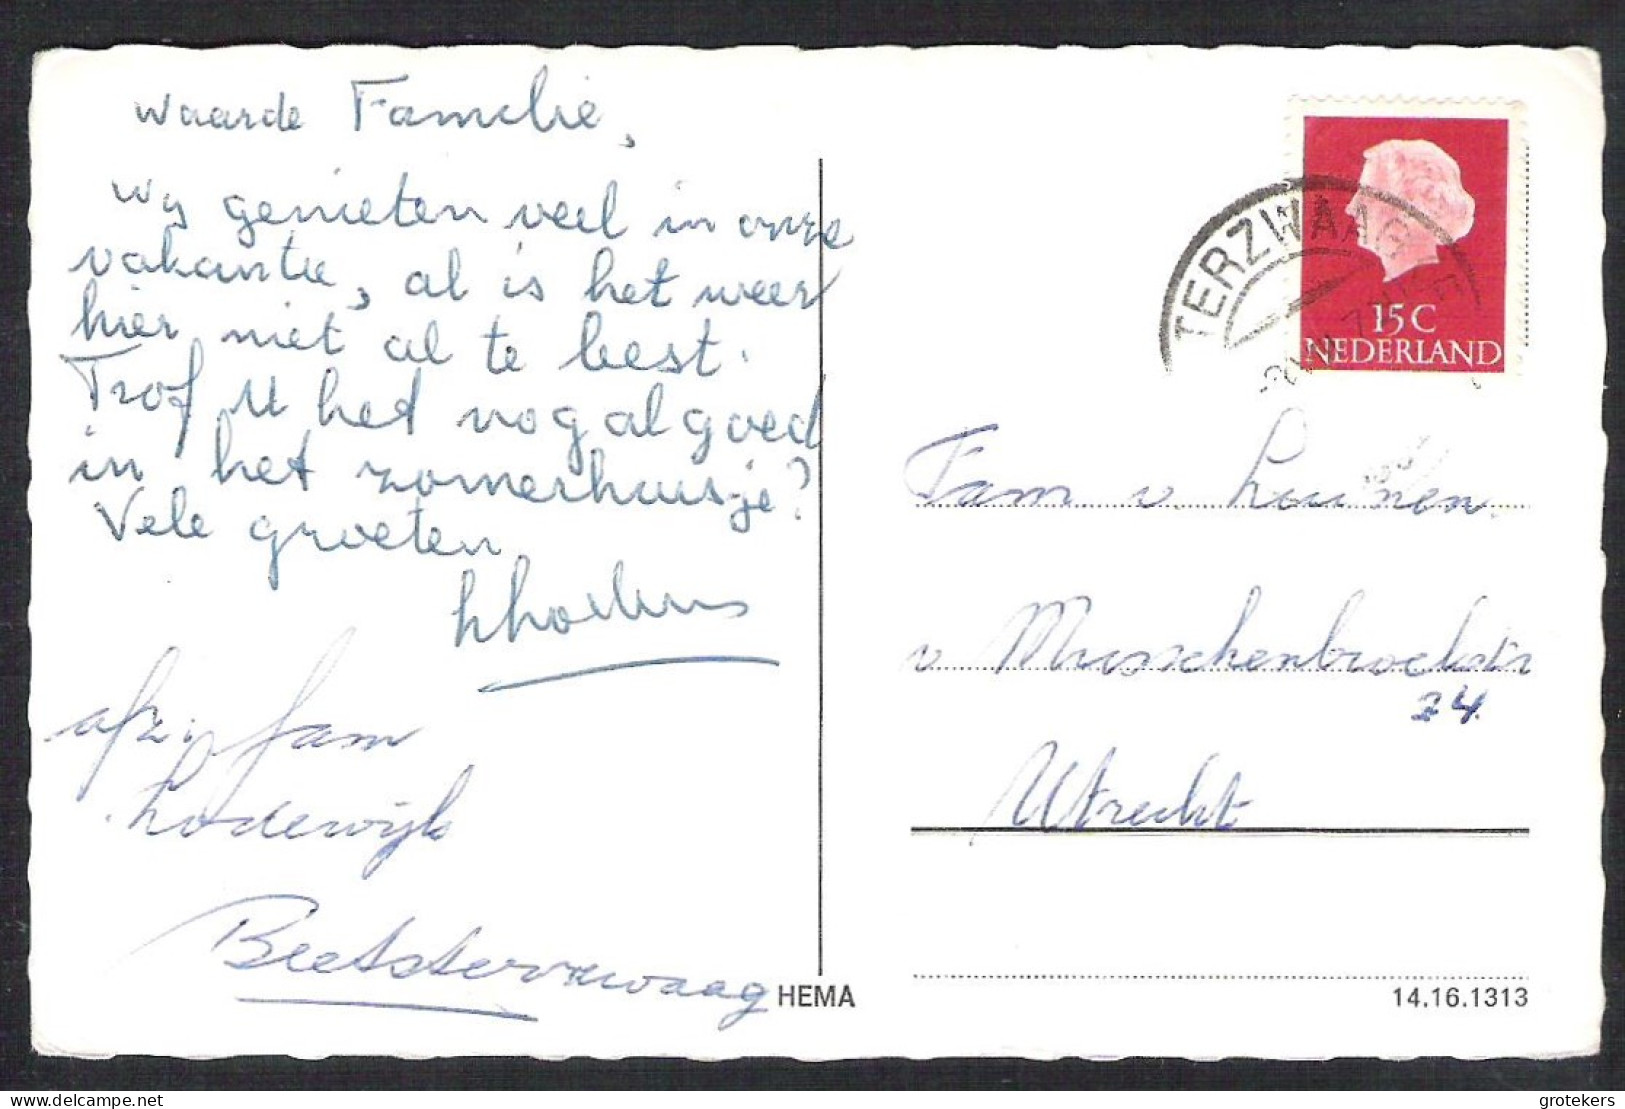 Waarde Familie,
Wij genieten veel in onze
vakantie, al is het weer
hier niet al te best.
Trof U het nog al goed
in het zomerhuisje?
Vele groeten
afz. fam
Lodewijk
Beetsterzwaag
HEMA
TERZWAAG
15 C
NEDERLAND
Fam v. Loenen
v Musschenbroekstr
24
Utrecht
14.16.1313
grotekers